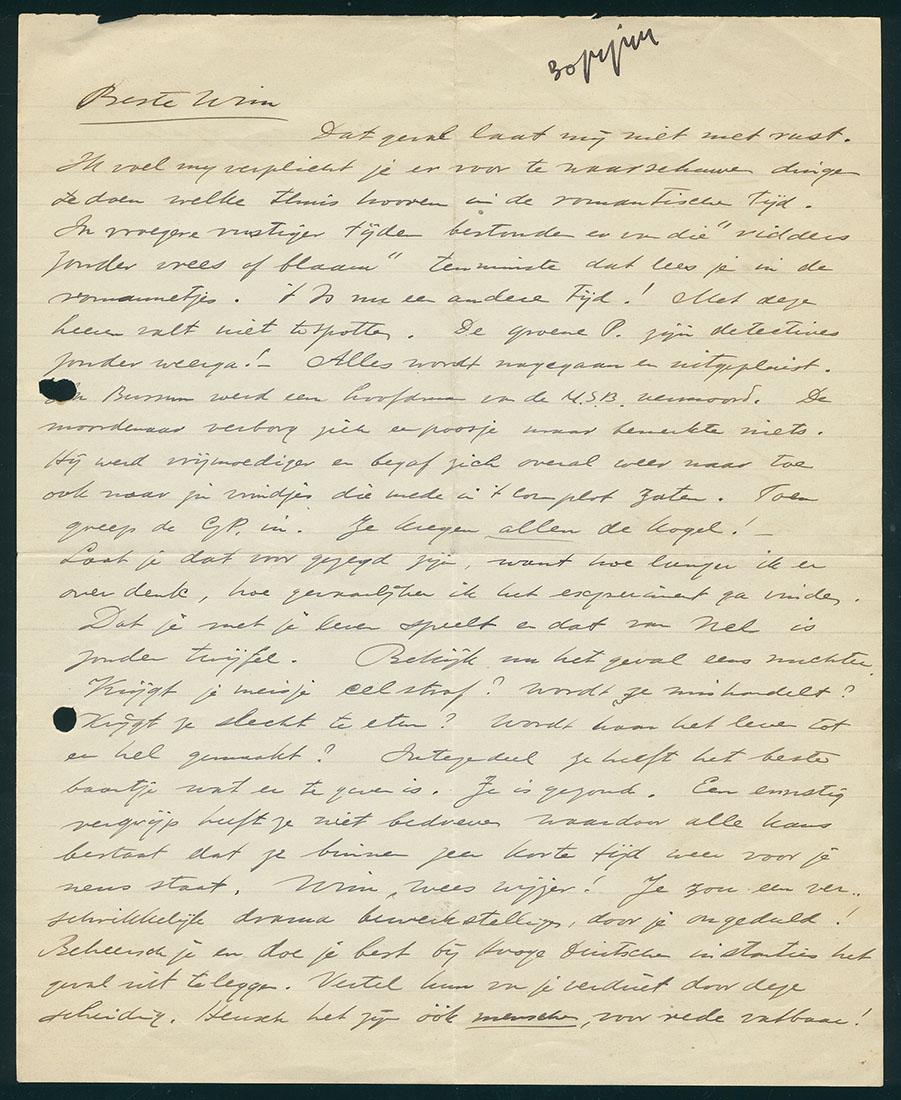 Beste Wim
Dat geval laat mij niet met rust.
Ik voel my verplicht je er voor te waarschuwen dingen
te doen welke thuis hooren in de romantische tijd.
In vroegere rustiger tijden bestonden er van die "ridders
zonder vrees of blaam" tenminste dat lees je in de
romannetjes. 't Is nu een andere tijd! Met deze
heeren valt niet te spotten. De groene P. zijn detectives
zonder weerga!- Alles wordt nagegaan en uitgepluist.
In Bussum werd een hoofdman van de N.S.B. vermoord. De
moordenaar verborg zich een poosje maar bemerkte niets.
Hij werd vrijmoediger en begaf zich overal weer naar toe
ook naar zijn vrindjes die mede in 't complot zaten. Toen
greep de G.P. in. Ze kregen allen de kogel! -
Laat je dat voor gezegd zijn, want hoe langer ik er
over denk, hoe gevaarlijker ik het experiment ga vinden.
Dat je met je leven speelt en dat van Nel is
zonder twijfel. Bekijk nu het geval eens nuchter.
Krijgt je meisje celstraf? Wordt ze mishandelt?
Krijgt ze slecht te eten? Wordt haar het leven tot
en hel gemaakt? Integedeel ze heeft het beste
baantje wat er te geven is. Ze is gezond. Een ernstig
vergrijp heeft ze niet bedreven waardoor alle kans
bestaat dat ze binnen zeer korte tijd weer voor je
neus staat. Wim, wees wijzer! Je zou een ver-
schrikkelijk drama bewerkstelligen, door je ongeduld!
Beheersch je en doe je best bij hooge Duitsche instanties het
geval uit te leggen. Vertel hun van je verdriet door deze
scheiding. Heusch het zijn óók menschen, voor rede vatbaar!